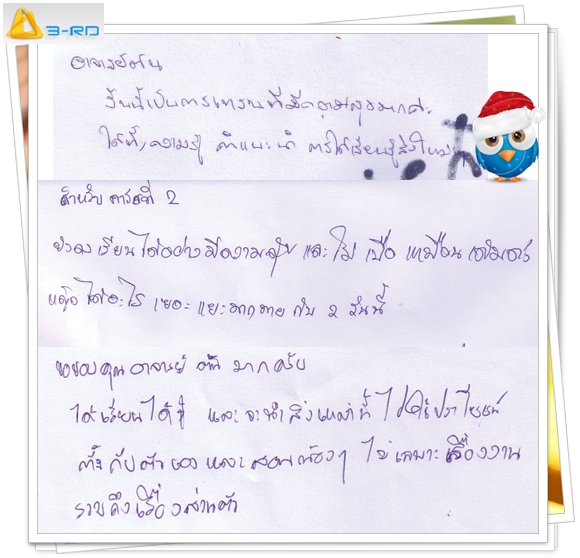 3-RD
อาจารย์
วันนี้เป็นการเทรนที่มีความสุขมากค่ะ
ได้ทั้งความรู้ คำแนะนำ การได้เรียนรู้สิ่งใหม่
สำหรับ การที่ 2
เรียนได้อย่างมีความสุข และ ไม่ เบื่อ เหมือน
ได้อะไร เยอะ แยะมากมาย กับ 2 วันนี้
ขอขอบคุณ อาจารย์ มากครับ
ได้เรียนได้รู้ และ จะนำสิ่งเหล่านี้ ไปใช้ประโยชน์
ทั้ง กับตัวเอง และสอนน้องๆ ไม่เฉพาะเรื่องงาน
รวมถึงเรื่องส่วนตัว